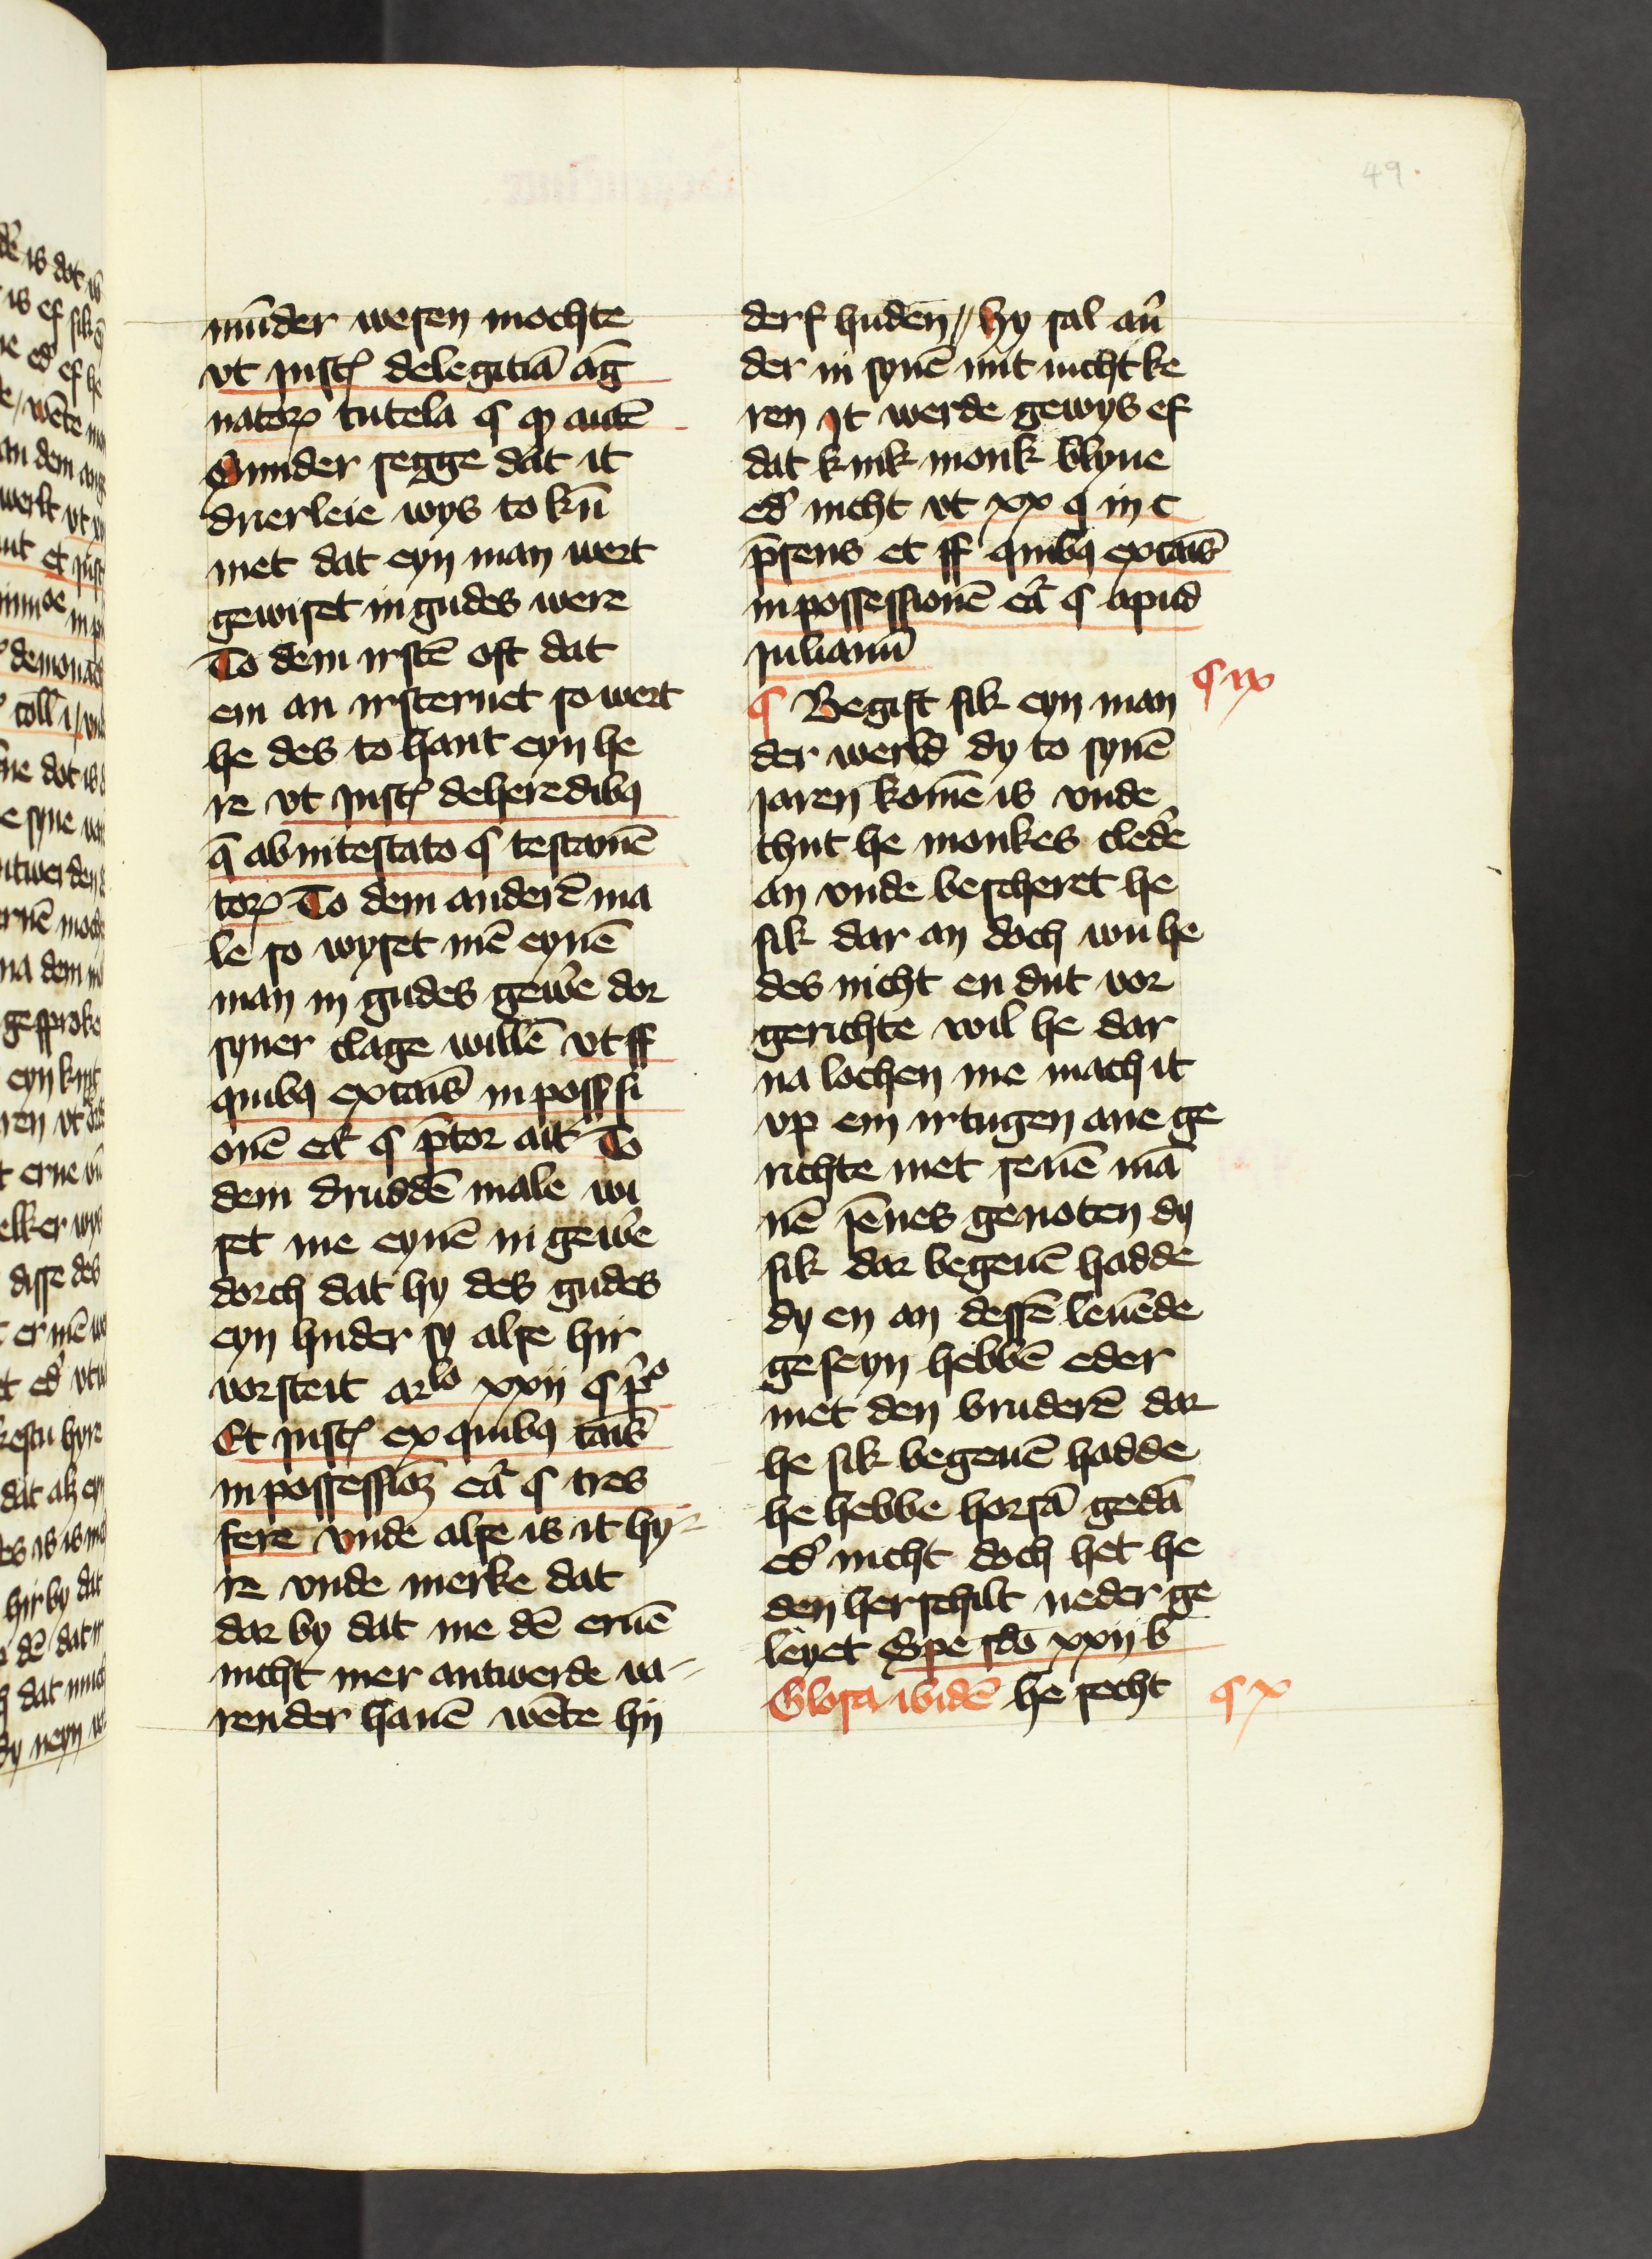 49.
mūder wesen mochte
vt instͥ delegitiā āg
natoꝝ tutela § ꝙ autē
Sunder segge dat it
drierleie wys to kū
met dat eyn man wert
gewiset in gudes were
To dem irstē oft dat
em an irsteruet so wert
he des to hant eyn he
re vt instͥ deheredibꝰ
q̄ abintestato § testamē
toꝝ To dem anderē ma
le so wyset mē eynē
man in gudes gewe̕ dor
syner clage willē vt ff
quibꝰ excaīs in possessi
onē eat̕ § p̄tor ait To
dem druddē male wi
set me eynē in gewe̕
dorch dat hy des gudes
eyn huder sy alse hir
vorsteit arlo xxii § p͛o
Et instͥ ex quibꝰ caīs
in possessioꝫ eat̕ § tres
fere vnde alse is it hy
re vnde merke dat
dar by dat me dē eruē
nicht mer antwerde va
render hauē wēte hij
derf hudēn // hy sal an̄
der in synē nut nicht ke
ren It werde gewys ef
dat kink monk blyue
ed̕ nicht vt xx q iii c
p̄sens et ff quibꝰ excaīs
in possessionē eat̕ § apud
iulianū
§ ix
¶ Begift sik eyn man
der werld dy to synē
jaren komē is vnde
thut he monkes clede̕
an vnde bescheret he
sik dar an doch wu he
des nicht en dut vor
gerichte wil he dar
na lochen me mach it
vp em irtugen ane ge
richte met seuē mā
nē jēnes genoten dy
sik dar begeuē hadde
dy en an dessē leuēde
geseyn hebbē eder
met den bruderē dar
he sik begeuē hadde
he hebbe horsā gedā
ed̕ nicht doch het he
den herschilt neder ge
leyet Spe sclo xxii b
Glosa ibidē he secht
§ x